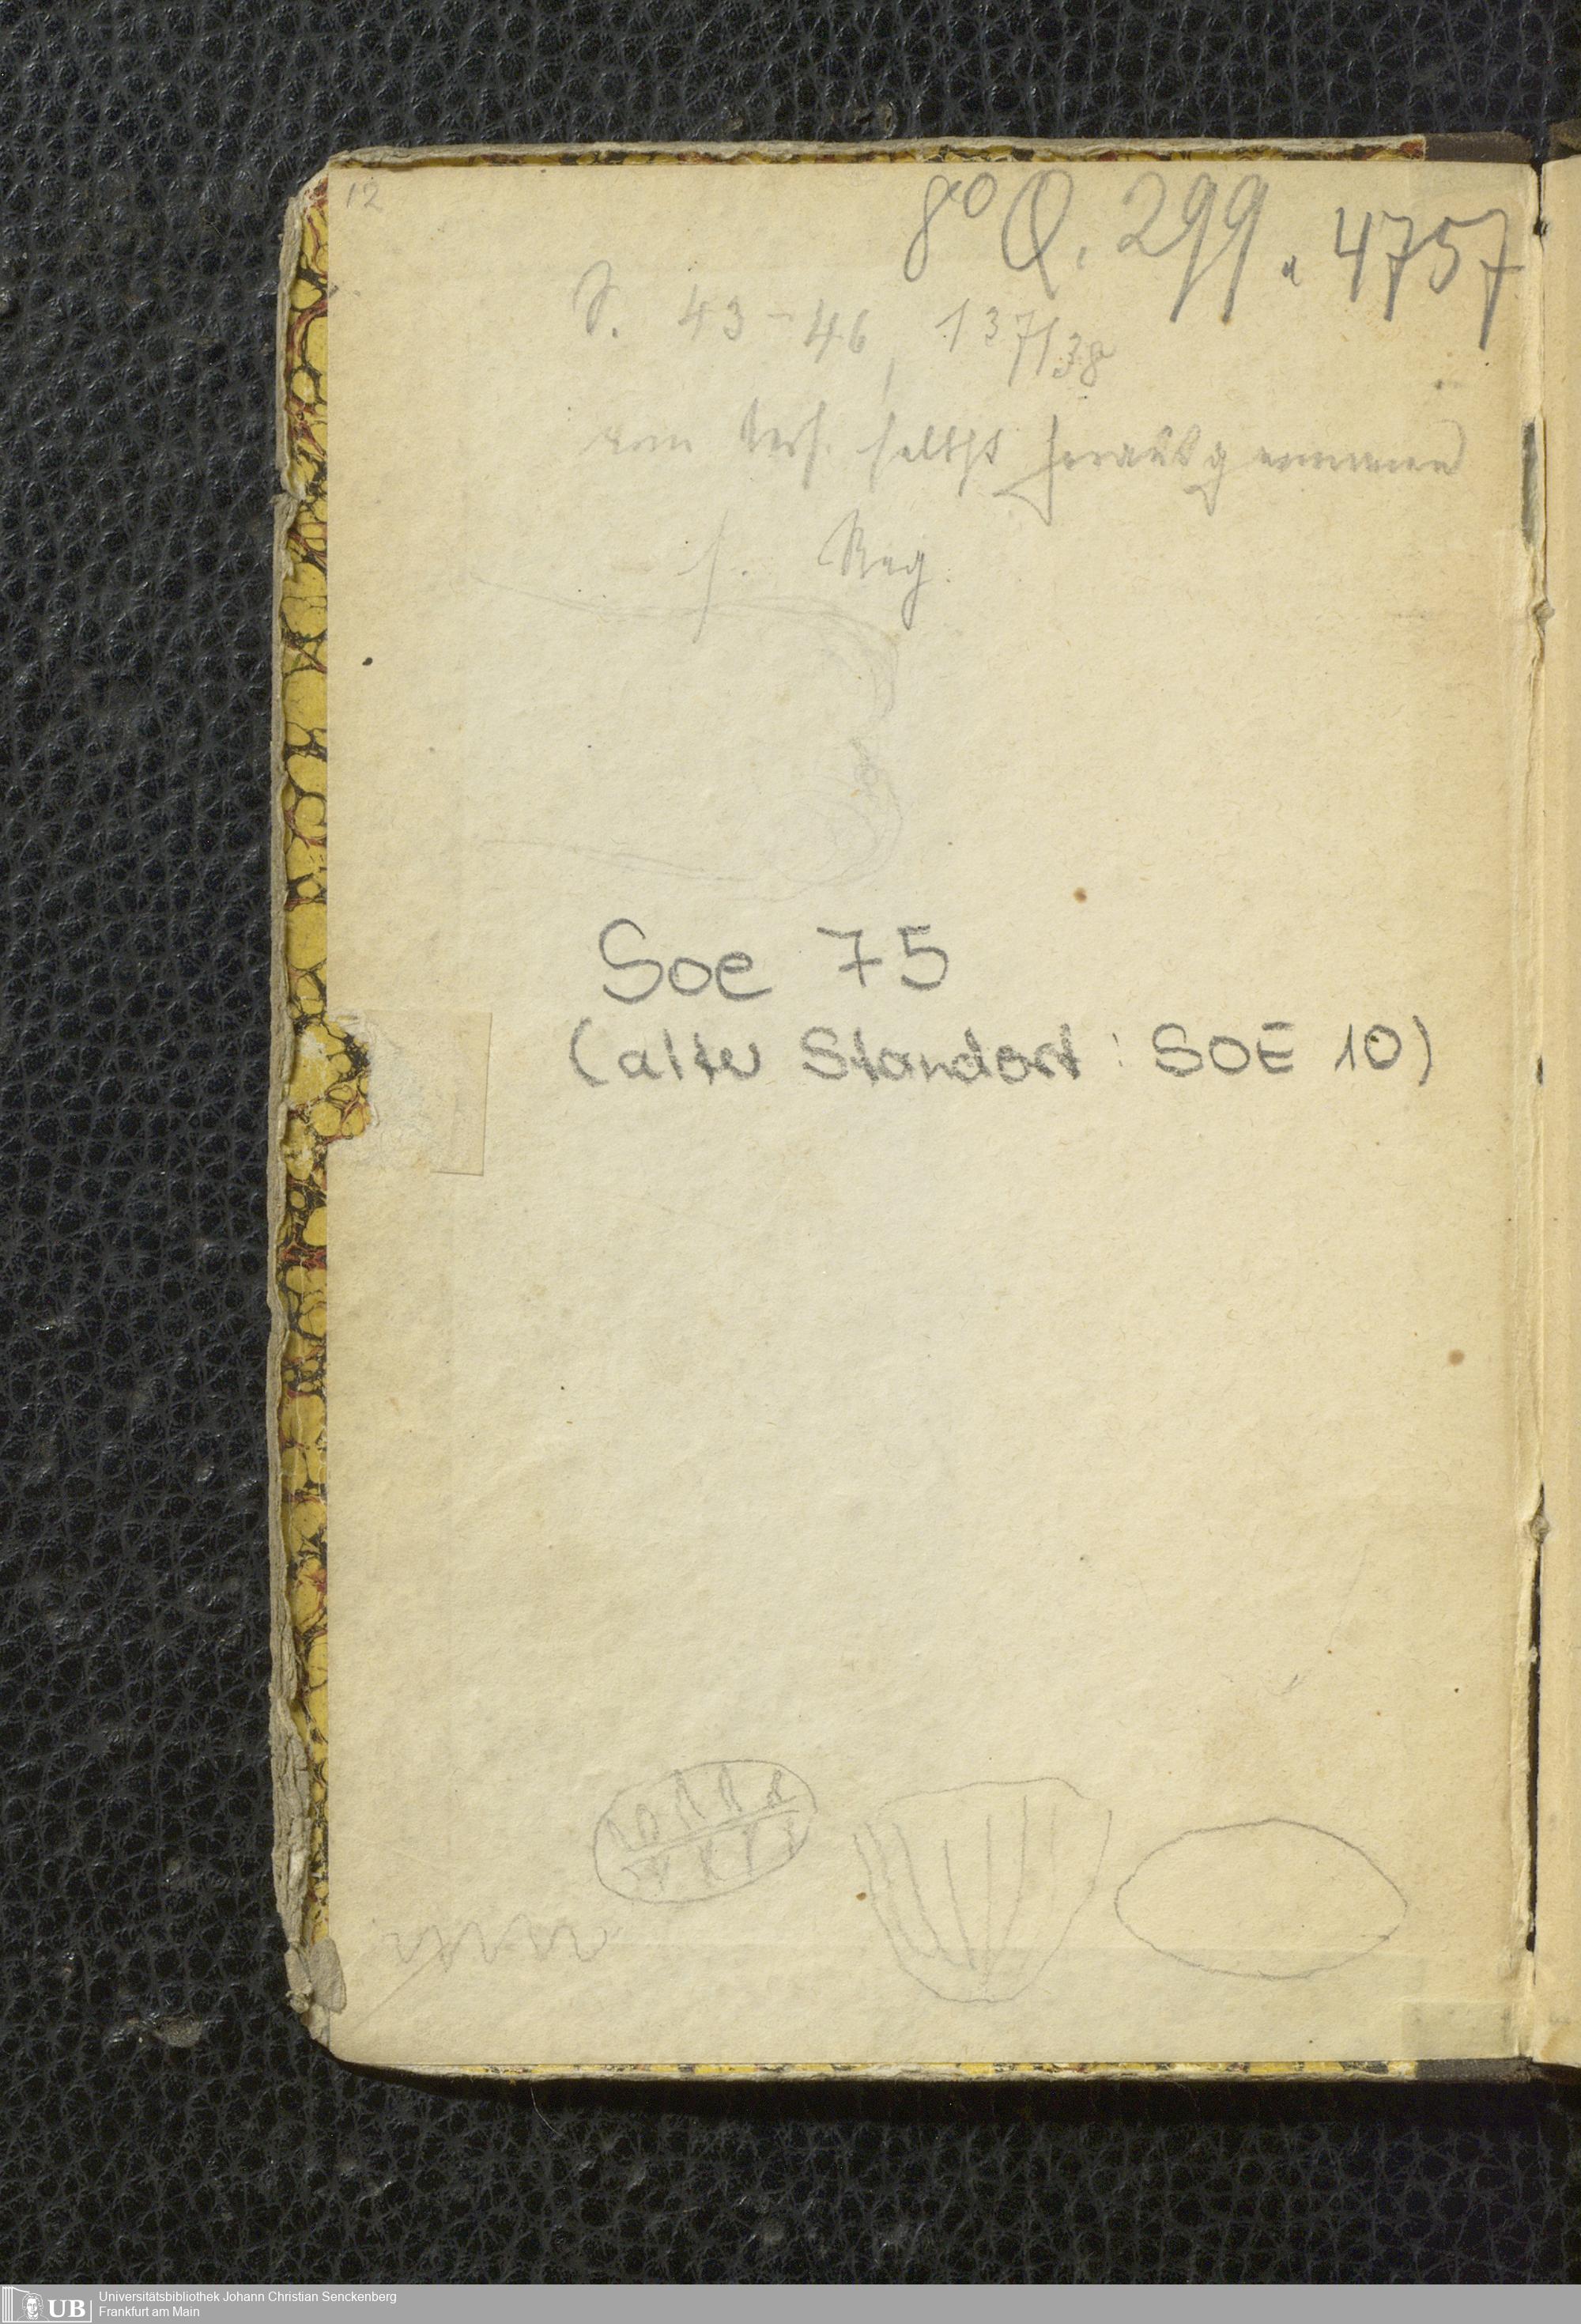 12
8° Q. 299. 4757
S. 43-46, 137/38
vom Verf. selbst herausgenommen
s. Reg.
Soe 75
(alter Standort: SOE 10)
UB Universitätsbibliothek Johann Christian Senckenberg
Frankfurt am Main